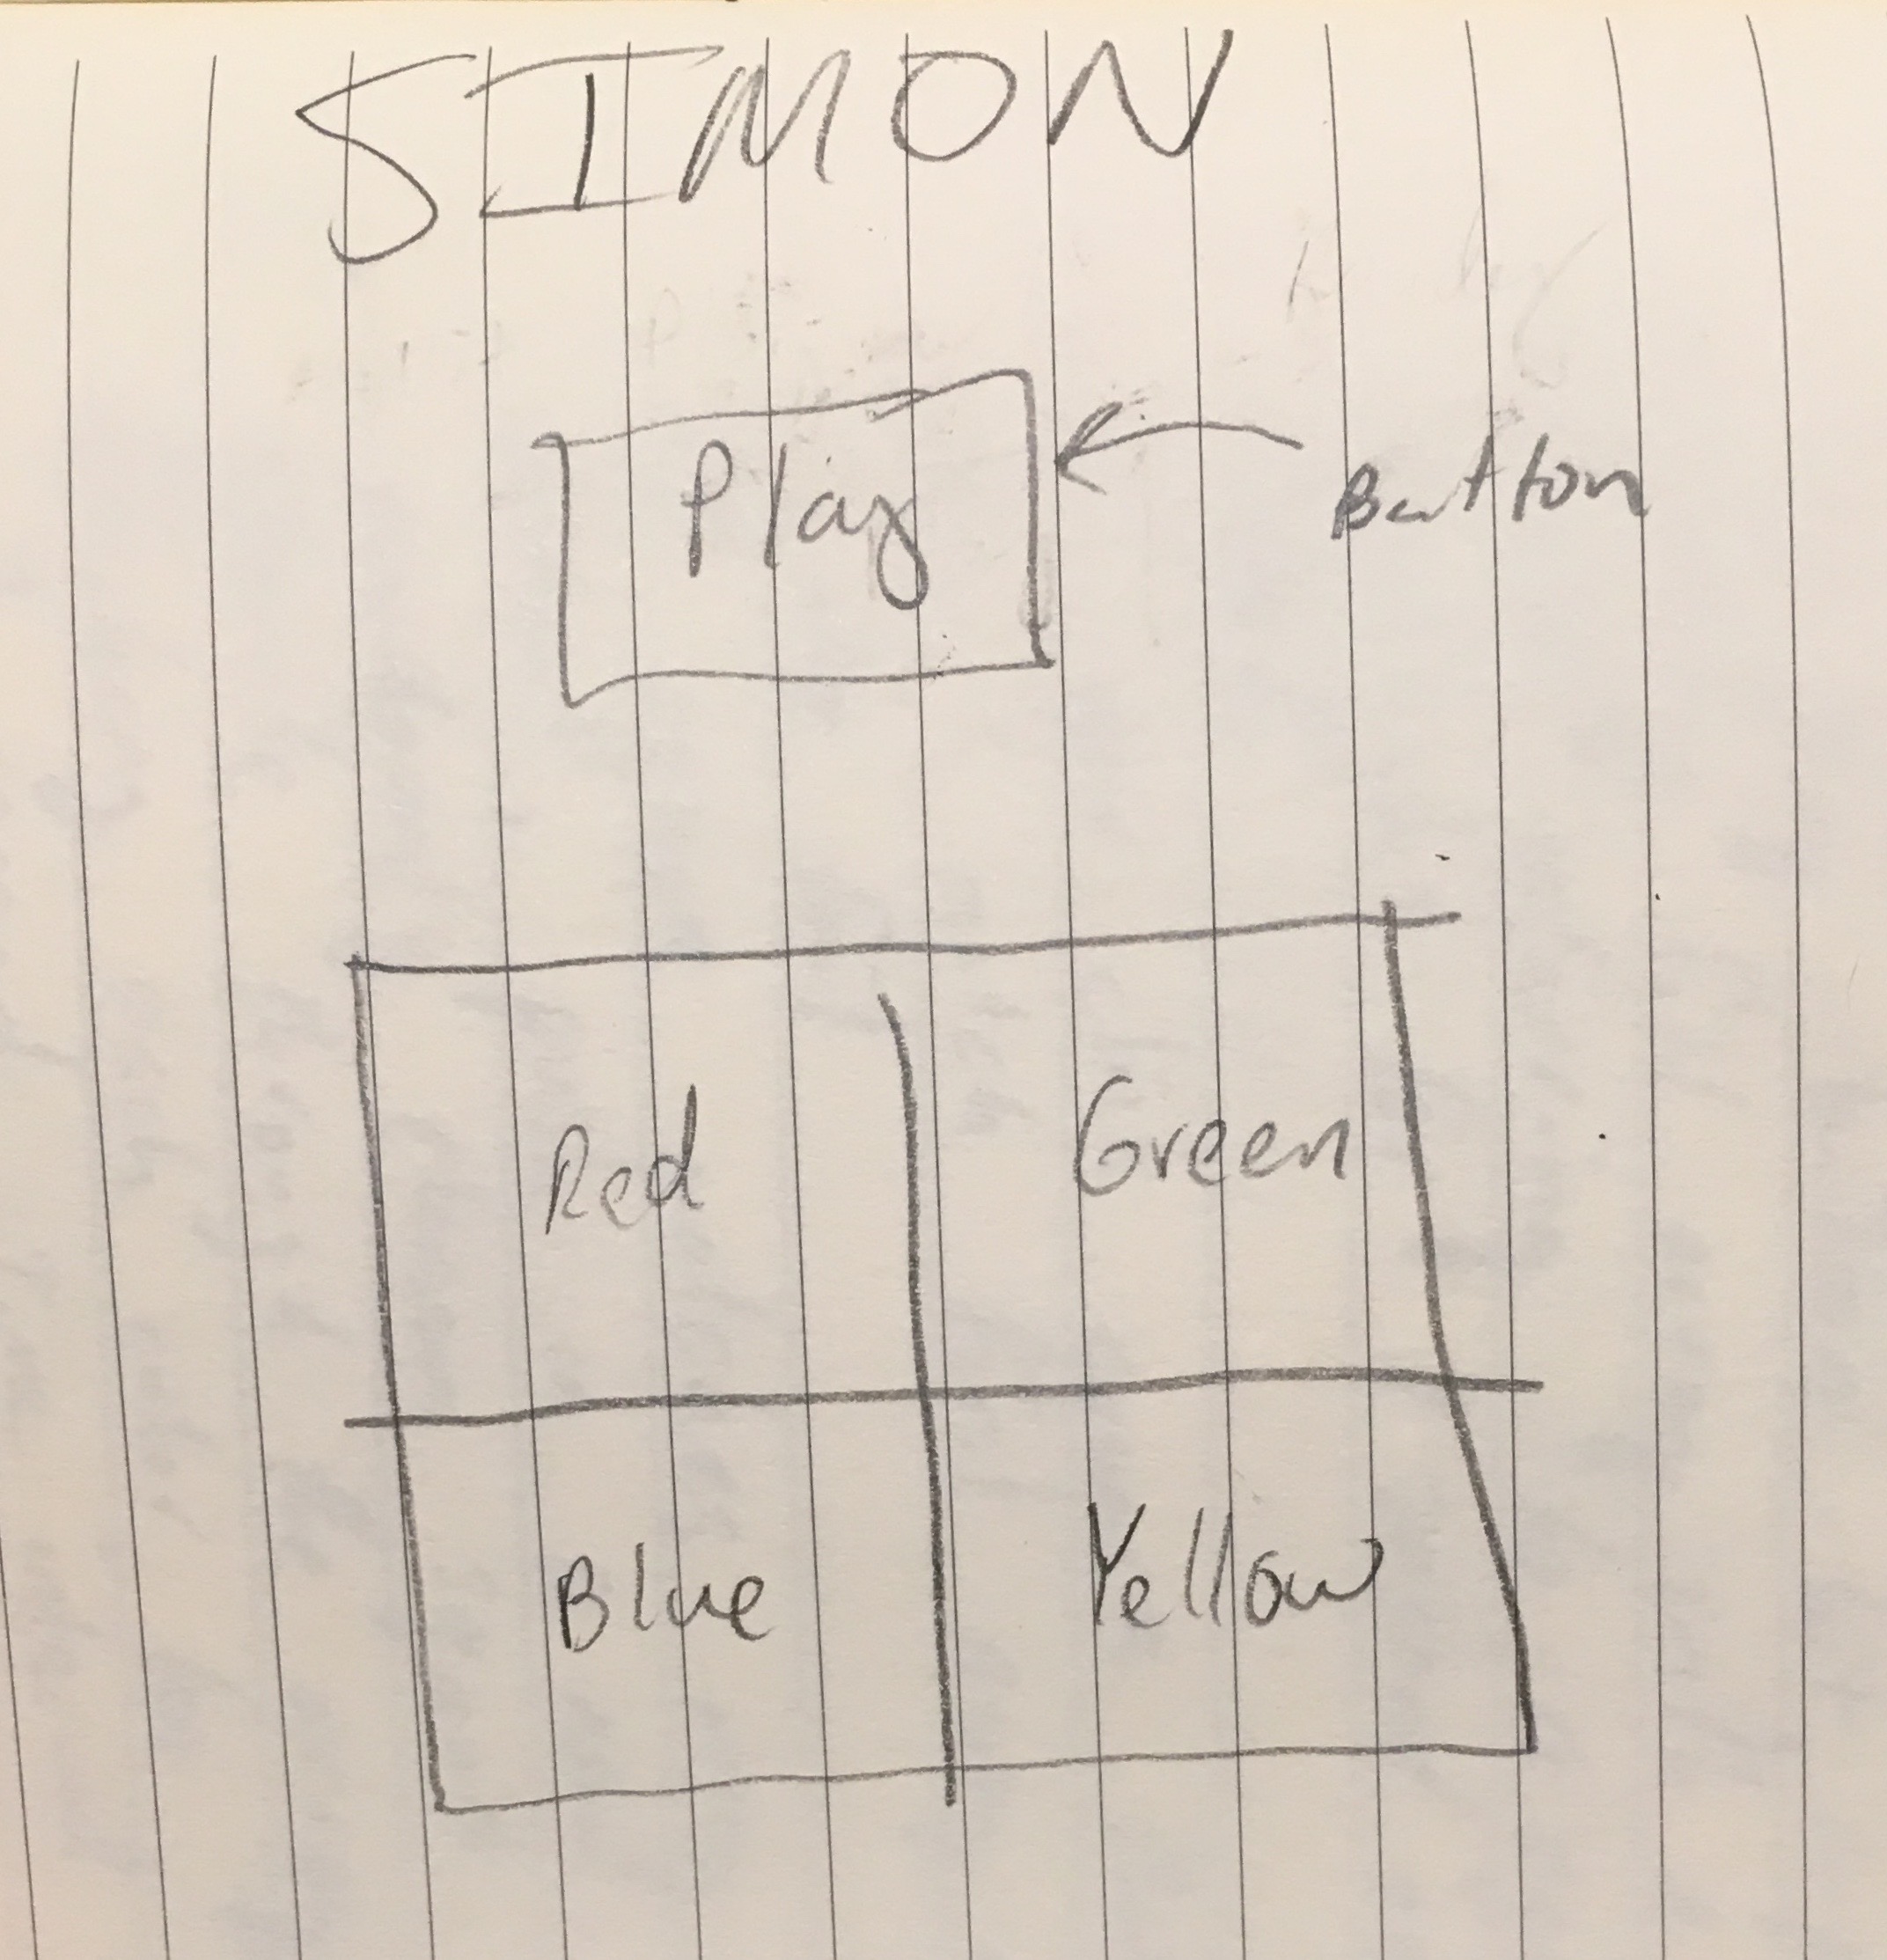 SIMON
Play
Button
Red Green
Blue Yellow